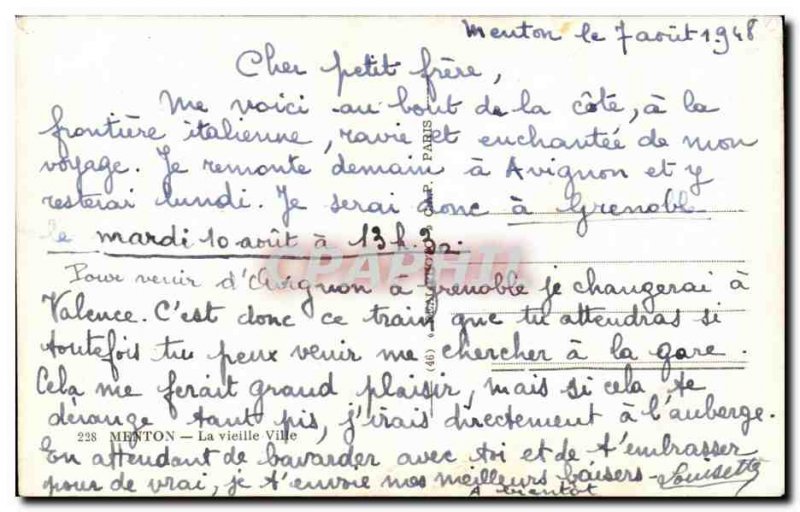 Menton le 7 août 1948
Cher petit frère,
Me voici au bout de la côte, à la
frontière italienne, ravie et enchantée de mon
voyage. Je remonte demain à Avignon et y
resterai lundi. Je serai donc à Grenoble
le mardi 10 août à 13h.32.
CPARAMA
Pour venir d'Avignon à Grenoble je changerai à
Valence. C'est donc ce train que tu attendras si
toutefois tu peux venir me chercher à la gare.
Cela me ferait grand plaisir, mais si cela te
dérange tant pis, j'irais directement à l'auberge.
228 MENTON — La vieille Ville
En attendant de bavarder avec toi et de t'embrasser
pour de vrai, je t'envoie mes meilleurs baisers - Louisette
A bientôt
(46) C.A.P. PARIS